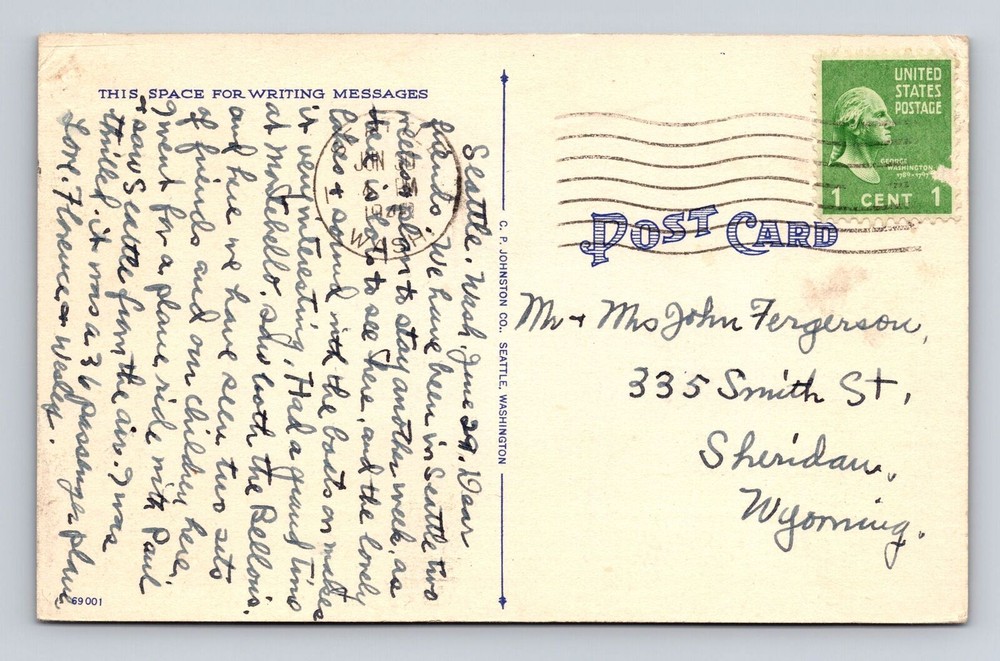 THIS SPACE FOR WRITING MESSAGES
Seattle, Wash, June 29. Dear
friends: We have been in Seattle two
weeks plan to stay another week, as
there is a lot to see here, and the lovely
lakes & sound with the boats on makes
it very interesting. Had a grand time
at Montebello, saw both the Bellois.
and here we have seen two sets
of friends and our children here,
I went for a plane ride with Paul
& saw Seattle from the air. I was
thrilled, it was a 36 passenger plane
Love, Florence & Wesley.
69001
C. P. JOHNSTON CO., SEATTLE, WASHINGTON
JUN
WASH
UNITED
STATES
POSTAGE
GEORGE
WASHINGTON
1789-1797
1 CENT 1
POST CARD
Mr & Mrs John Fergerson,
335 Smith St,
Sheridan,
Wyoming.